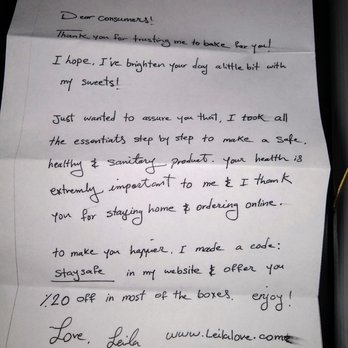 Dear Consumers!
Thank you for trusting me to bake for you!
I hope, I've brighten your day a little bit with
my sweets!
Just wanted to assure you that, I took all
the essentials step by step to make a safe,
healthy & sanitary product. your health is
extremly important to me & I thank
you for staying home & ordering online.
to make you happier, I made a code:
staysafe in my website & offer you
%20 off in most of the boxes. enjoy!
Love, Leila www.Leilalove.com